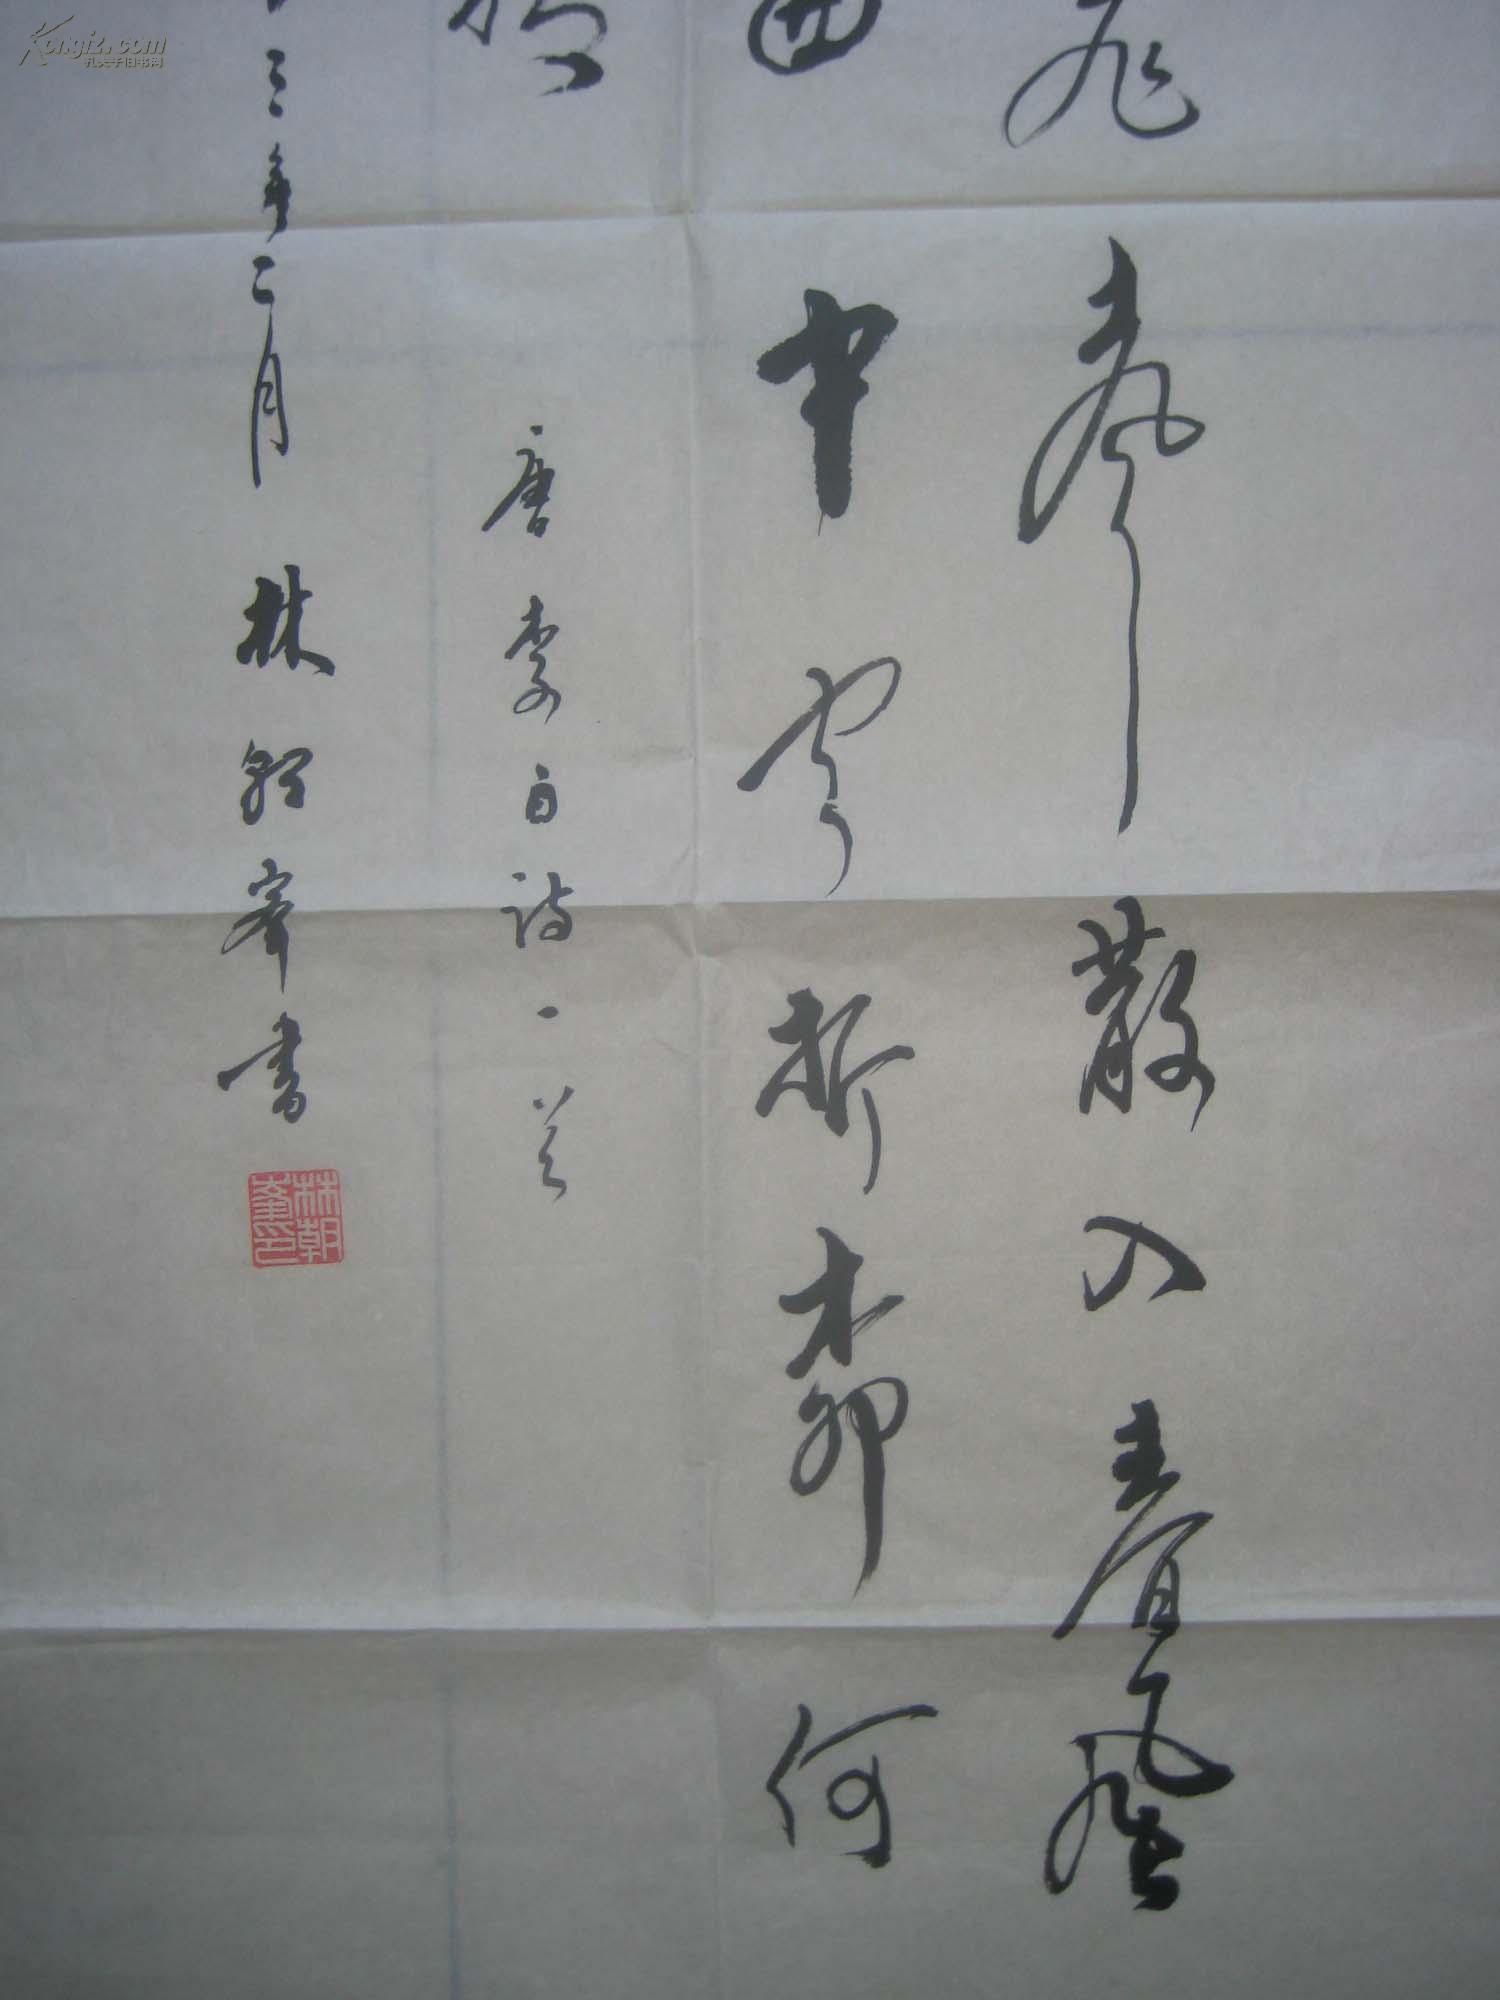 飛聲散入春風
曲中聞折柳何
唐李白詩一首
三年二月林朝峯書
林朝峯印
Kongfz.com
孔夫子旧书网